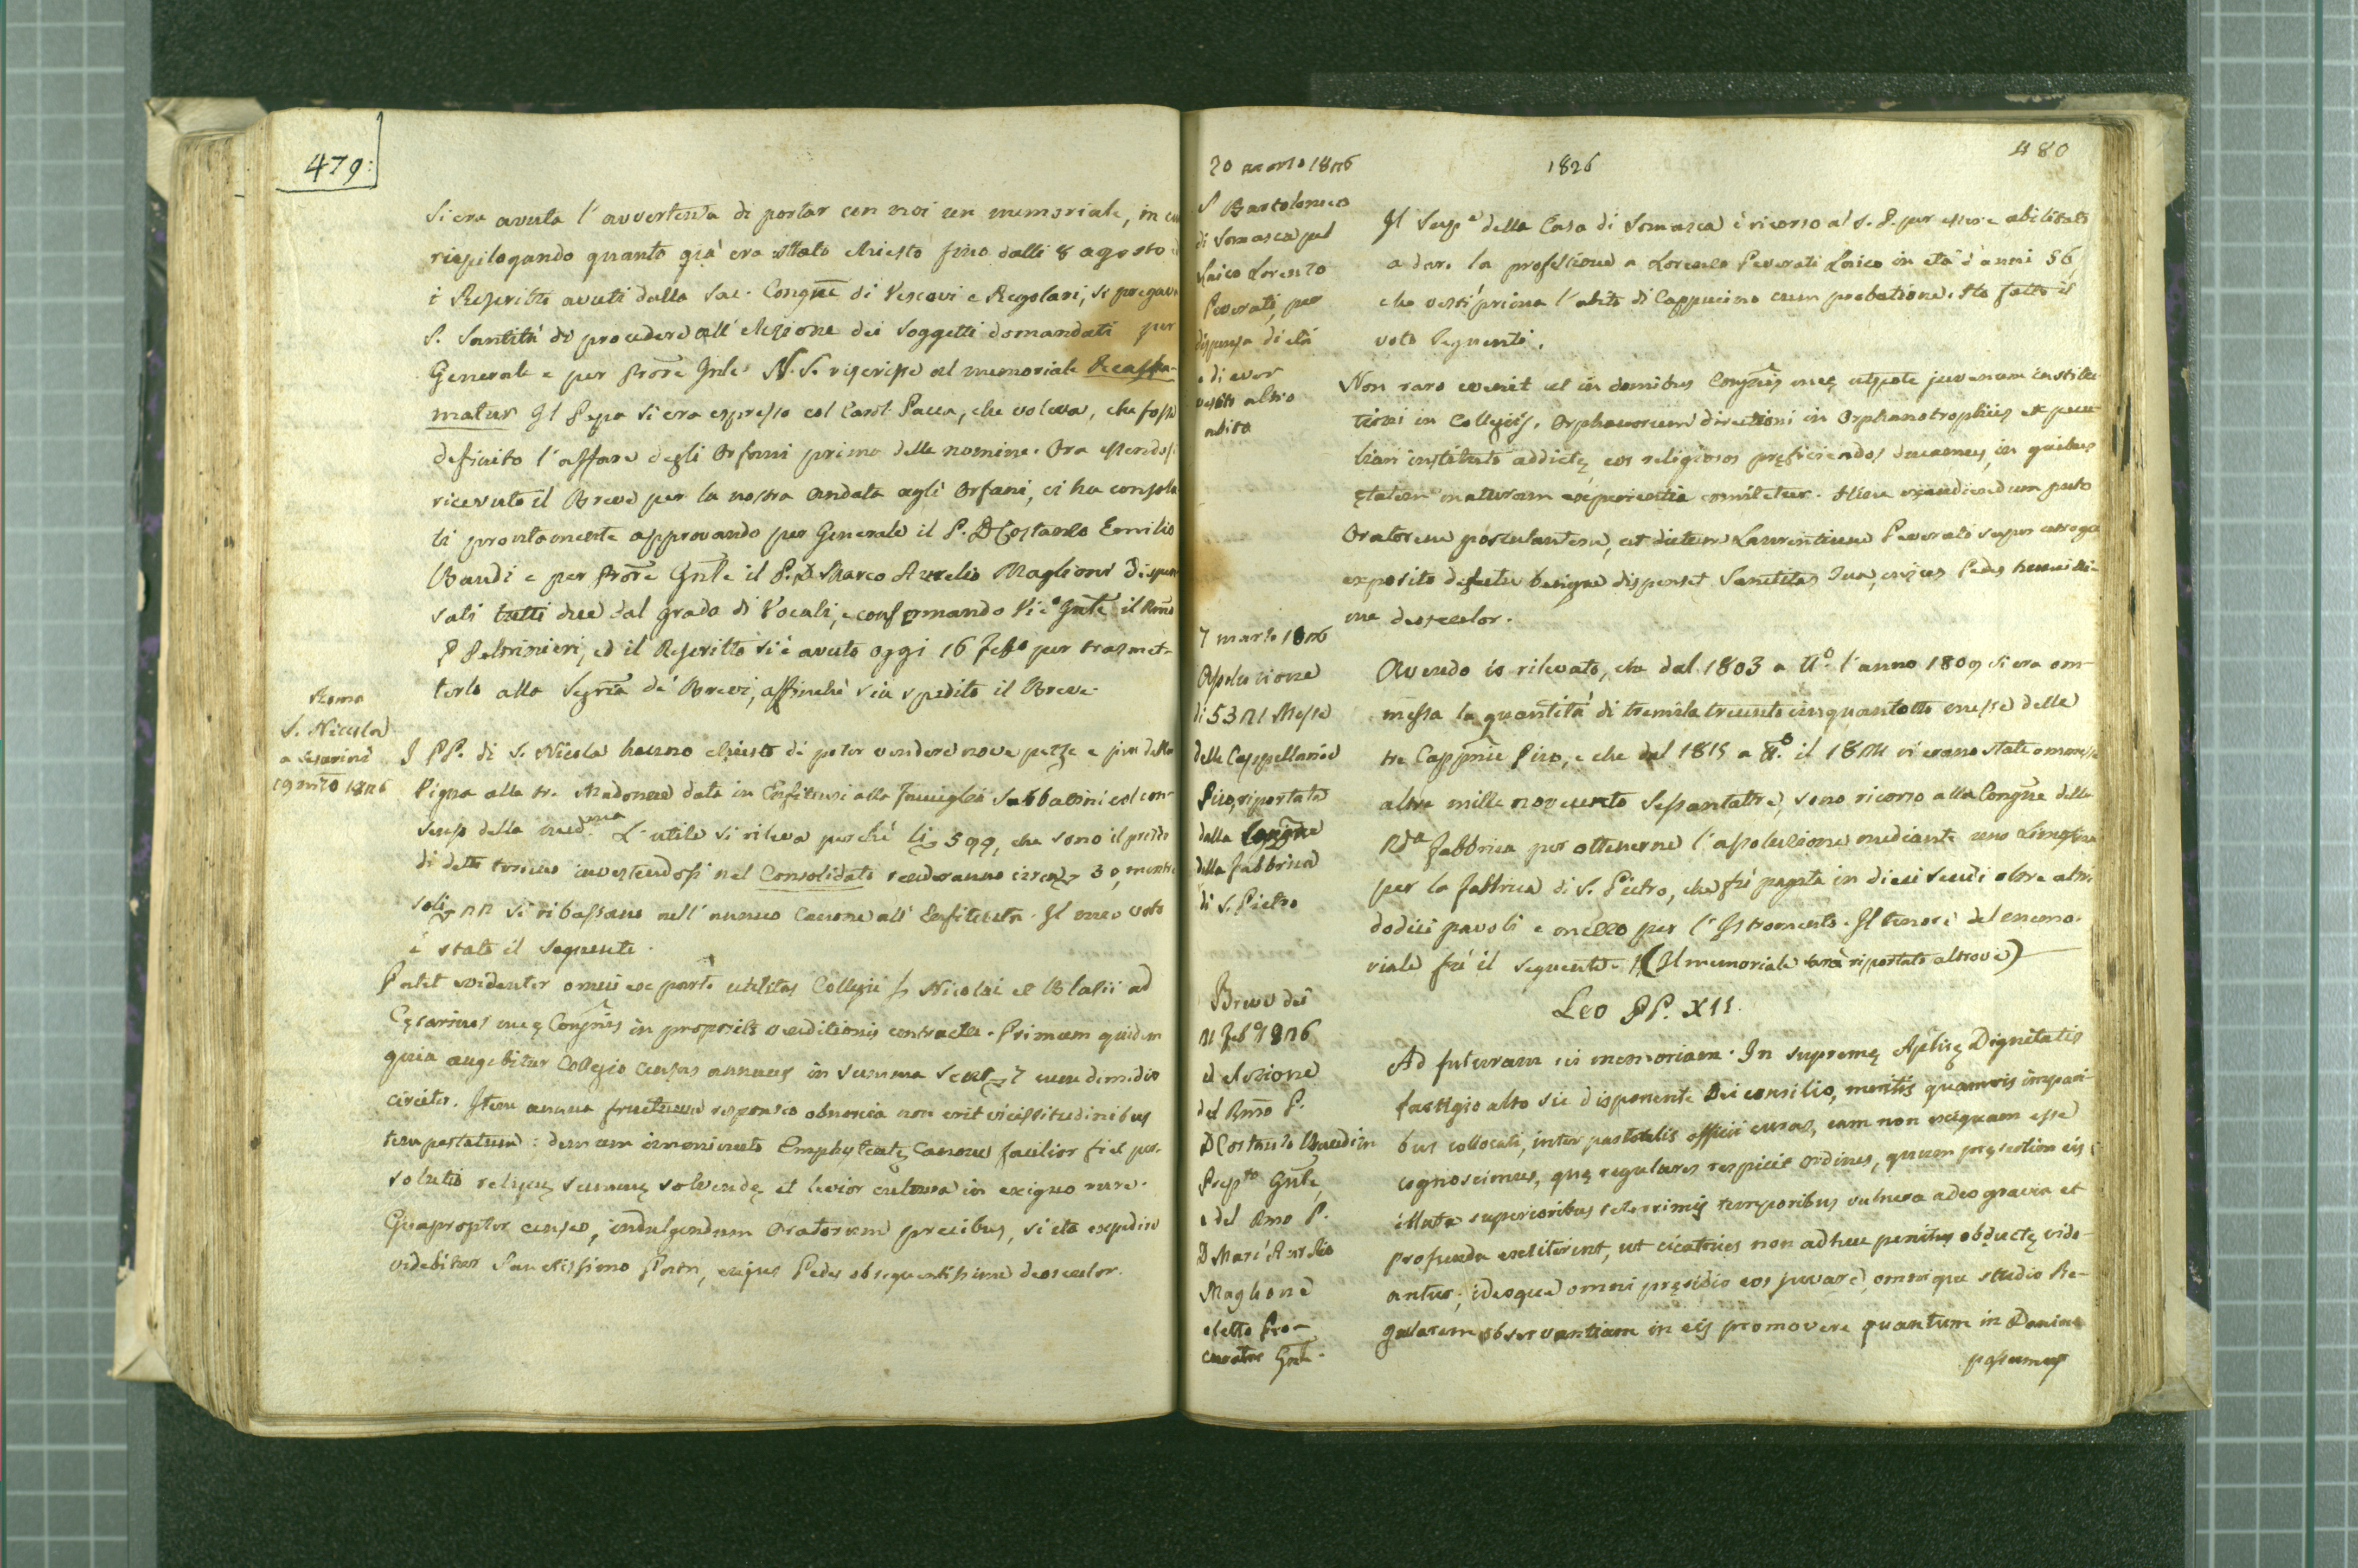 479:
si era avuta l'avvertenza di portar con noi un memoriale, in cui
riepilogando quanto già era stato chiesto fino dalli 8 agosto
i Rescritti avuti dalla Sac. Congñe di Vescovi e Regolari, si pregava
S. Santità di procedere all'elezione dei soggetti domandati per
Generale e per Prore Gnle. N. S. rescrisse al memoriale Reassu-
matur Il Papa si era espresso col Card. Pacca, che voleva, che fosse
definito l'affare degli Orfani prima delle nomine. Ora essendosi
ricevuto il Breve per la nostra andata agli Orfani, ci ha consola
ti prontamente approvando per Generale il P. D Costanzo Emilio
Baudi e per Prore Gnle il P. D. Marco Aurelio Maglione dispen
sati tutti due dal grado di Vocali, e confermando Vic.o Gnle il Rmo
P Peltrinieri, ed il Rescritto si è avuto oggi 16 Febb.o per trasmet-
terlo alla Segria de' Brevi, affinchè sia spedito il Breve.
Roma
S. Nicola
a Cesarini
19 1826
I PP. di S. Nicola hanno chiesto di poter vendere nove pezze e più della
Vigna alle tre Madonne data in Enfiteusi alla Famiglia Sabbatini col con-
senso della med.ma L'utile si rileva perchè li 599, che sono il prezzo
di detto terreno investendosi nel Consolidato renderanno circa 30, mentre
soli 22 si ribassano nell'annuo Canone all'Enfiteuta. Il mio voto
è stato il seguente.
Patet evidenter omni ex parte utilitas Collegii SS Nicolai et Blasii ad
Cęsarinos meę Congñis in proposito venditionis contractu. Primum quidem
quia augebitur Collegio census annuus in summa scut. 7 cum dimidio
circiter. Item annua fructuum responsio obnoxia non erit vicissitudinibus
tempestatum: demum imminuto Emphyteutę Canone facilior fiet per-
solutio reliquę summę solvendę et levior cultura in exiguo rure.
Quapropter censeo, indulgendum Oratorum precibus, si ita expedire
videbitur Sanctissimo Patri, cujus Pedes obsequentissime deosculor.
480
1826
20 1826
S Bartolomeo
di Somasca pel
Laico Lorenzo
Peverati, per
dispensa di età
e di aver
vestito altro
abito
Il Sup.e della Casa di Somasca è ricorso al S. P. per essere abilitato
a dare la professione a Lorenzo Peverati Laico in età d'anni 56,
che vestì prima l'abito di Cappuccino cum probatione. Ho fatto il
voto seguente.
Non raro evenit ut in domibus Congñis meę utpote juvenum institu
tioni in Collegiis, Orphanorum directioni in Orphanotrophiis ex pecu
liari instituto addictę eos religiosos pręficiendos ducamus, in quibus
ętatem maturam experientia comitetur. Hinc exaudiendum puto
Oratorem postulantem, ut dictum Laurentium Peverati super
exposito defectu benigne dispenset Sanctitas Sua, cujus Pedes humilli-
me deosculor.
7 marzo 1826
Assoluzione
di 5321 Messe
delle Cappellanie
Piro, riportata
dalla Congñe
della Fabbrica
di S. Pietro
Avendo io rilevato, che dal 1803 a tt.o l'anno 1809 si era om-
messa la quantità di tremila trecento cinquantotto messe delle
tre Cappnie Piro, e che dal 1815 a tt.o il 1824 vi erano state ommesse
altre mille novecento sessantatre, sono ricorso alla Congñe della
Rda Fabbrica per ottenerne l'assoluzione mediante una Limosina
per la fabbrica di S. Pietro, che fù pagata in dieci scudi oltre altri
dodici pavoli e mezzo per l'Istromento. Il tenore del memo-
riale fù il seguente. (Il memoriale sarà riportato altrove)
Breve dei
21 Feb. 1826
ed elezione
del Rmo P.
D Costanzo Baudi in
Prep.to Gnle,
e del Rmo P.
D Marc'Aurelio
Maglione
eletto Pro-
curatore Gnle.
Leo PP. XII.
Ad futuram rei memoriam. In supremę Aplicę Dignitatis
fastigio alto sic disponente Dei consilio, meritis quamvis impari-
bus collocati, inter pastoralis officii curas, eam non exiguam esse
cognoscimus, quę regulares respicit Ordines, quum pręsertim eis
illata superioribus teterrimis temporibus vulnera adeo gravia et
profunda exstiterint, ut cicatrices non adhuc penitus obductę vide-
antur; ideoque omni pręsidio eos juvare, omnique studio Re-
gularem observantiam in eis promovere quantum in Domino
possumus